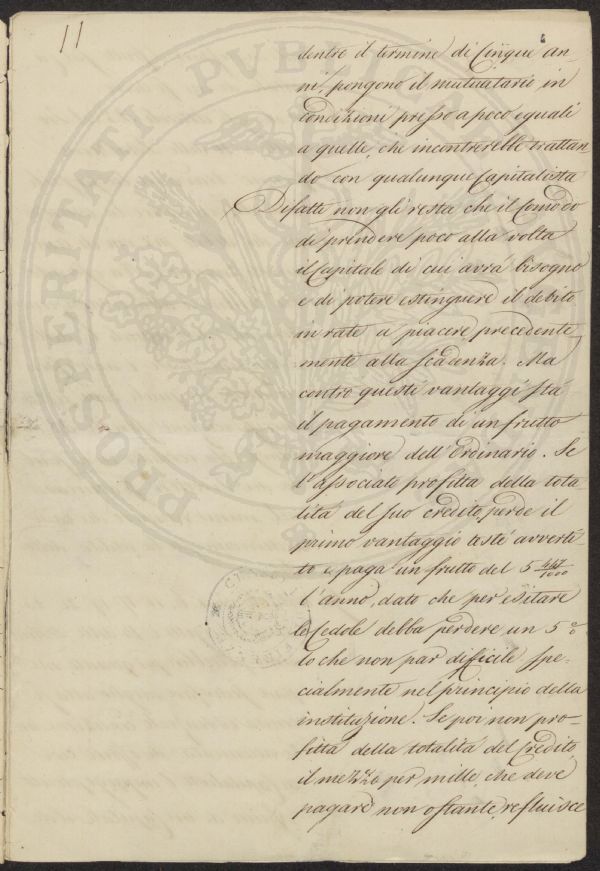 11
dentro il termine di Cinque an-
ni, pongono il mutuatario in
condizioni presso a poco eguali
a quelle, che incontrerebbe trattan-
do con qualunque Capitalista
Difatti non gli resta che il comodo
di prendere poco alla volta
il Capitale di cui avrà bisogno
e di potere estinguere il debito
in rate a piacere, precedente-
mente alla scadenza. Ma
contro questi vantaggi stà
il pagamento di un frutto
maggiore dell'Ordinario. Se
l'associato profitta della tota-
lità del suo credito, perde il
primo vantaggio testè avverti-
to e paga un frutto del 5 447/1000
l'anno, dato che per esitare
le Cedole debba perdere un 5 %
lo che non par difficile spe-
cialmente nel principio della
instituzione. Se poi non pro-
fitta della totalità del Credito,
il mezzo per mille, che deve
pagare non ostante, refluisce
PROSPERITATI PVBL